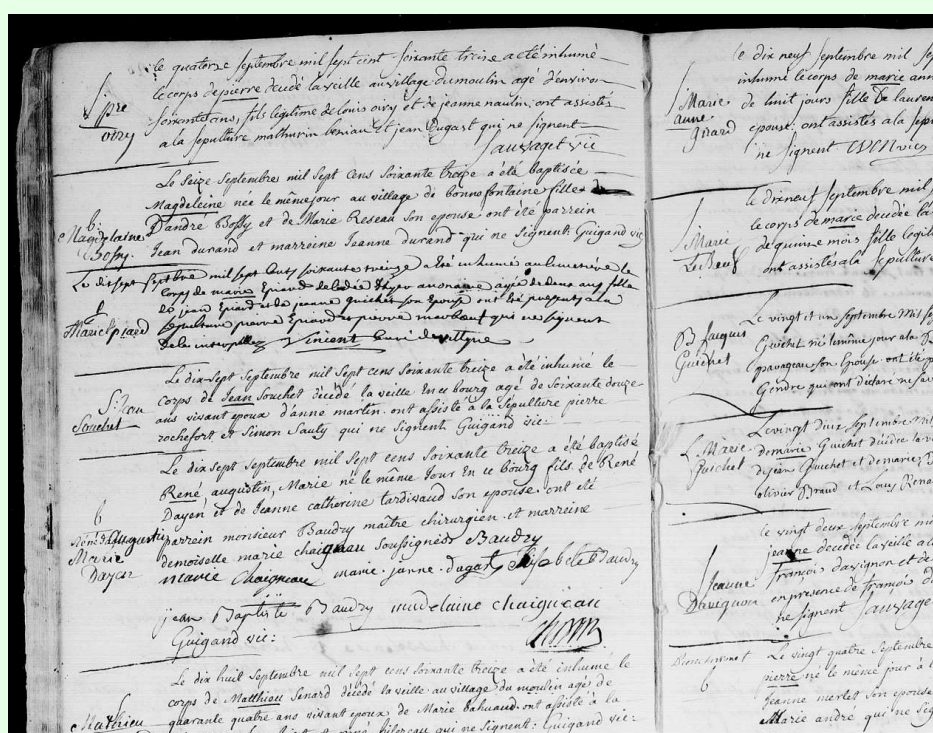 le quatorze septembre mil sept cent soixante treize a été inhumé
le corps de pierre décédé la veille au village du moulin agé d'environ
soixante ans, fils légitime de louis oiry et de jeanne naulin, ont assistés
a la sepulture mathurin et jean Dugast qui ne signent
Sauvaget vic
S. pre
oiry
Le Seize Septembre mil Sept Cens Soixante treize a été baptisée
Magdeleine née le même jour au village de bonnefontaine fille
D'andré Bossy et de Marie Reseau Son epouse ont été parrein
Jean durand et marreine Jeanne durand qui ne Signent: Guigand vic
b.
Magdelaine
Bossy.
Le dissept septbre mil sept cens soixante treize a été inhumé au cimetière le
corps de marie Epiard décédée agée de deux ans fille
de jean Epiard et de jeanne guichet son Epouse ont été presents a la
Sepulture pierre Epiard et pierre qui ne signent
Vincent Curé de
S
Marie Epiard
Le dix-Sept Septembre mil Sept cens Soixante treize a été inhumé le
corps de Jean Souchet décédé la veille En ce bourg agé de Soixante douze
ans vivant epoux d'anne martin. ont assisté à la Sépulture pierre
rochefort et Simon Sauty qui ne Signent Guigand vic:
S. Jean
Souchet
Le dix Sept Septembre mil Sept cens Soixante treize a été baptisé
René, augustin, Marie né le même Jour En ce bourg fils de René
Dayen et de Jeanne catherine tardivaud Son epouse. ont été
parrein monsieur Baudry maître chirurgien et marreine
demoiselle marie chaigneau soussignés Baudry
b
René Augustin
Marie
Dayen
marie Chaigneau marie-janne-dugast Elisabeth Baudry
jean Baptiste Baudry madelaine chaigneau
Guigand vic:
Le dix huit Septembre mil Sept cens Soixante treize a été inhumé le
corps de Matthieu Senard décédé la veille au village du moulin agé de
quarante quatre ans vivant epoux de Marie bahuaud. ont assisté à la
qui ne signent: Guigand vic:
Mathieu
le dix neuf septembre mil sep
inhumé le corps de marie ann
de huit jours fille de lauren
epouse. ont assistés a la sep
ne signent
S
Marie
anne
le dix neuf septembre mil
le corps de marie décédée la
de quinze mois fille légit
ont assistés a la sepulture
S
Marie
Le vingt et un septembre Mil sep
Guichet né le même jour a la
son Epouse. ont été p
Gendre qui ont déclaré ne sav
B Jacques
Guichet
Le vingt deux septembre mil
de marie Guichet décédée la v
de jean Guichet et de marie
olivier Braud et Louis Rena
S. Marie
Guichet
le vingt deux septembre mi
jeanne décédée la veille a
françois davignon et de
en presence de françois d
ne signent Sauvage
S
Jeanne
Davignon
Le vingt quatre Septembre
pierre né le même jour à l
Jeanne merlet son epouse
Marie andré qui ne sig